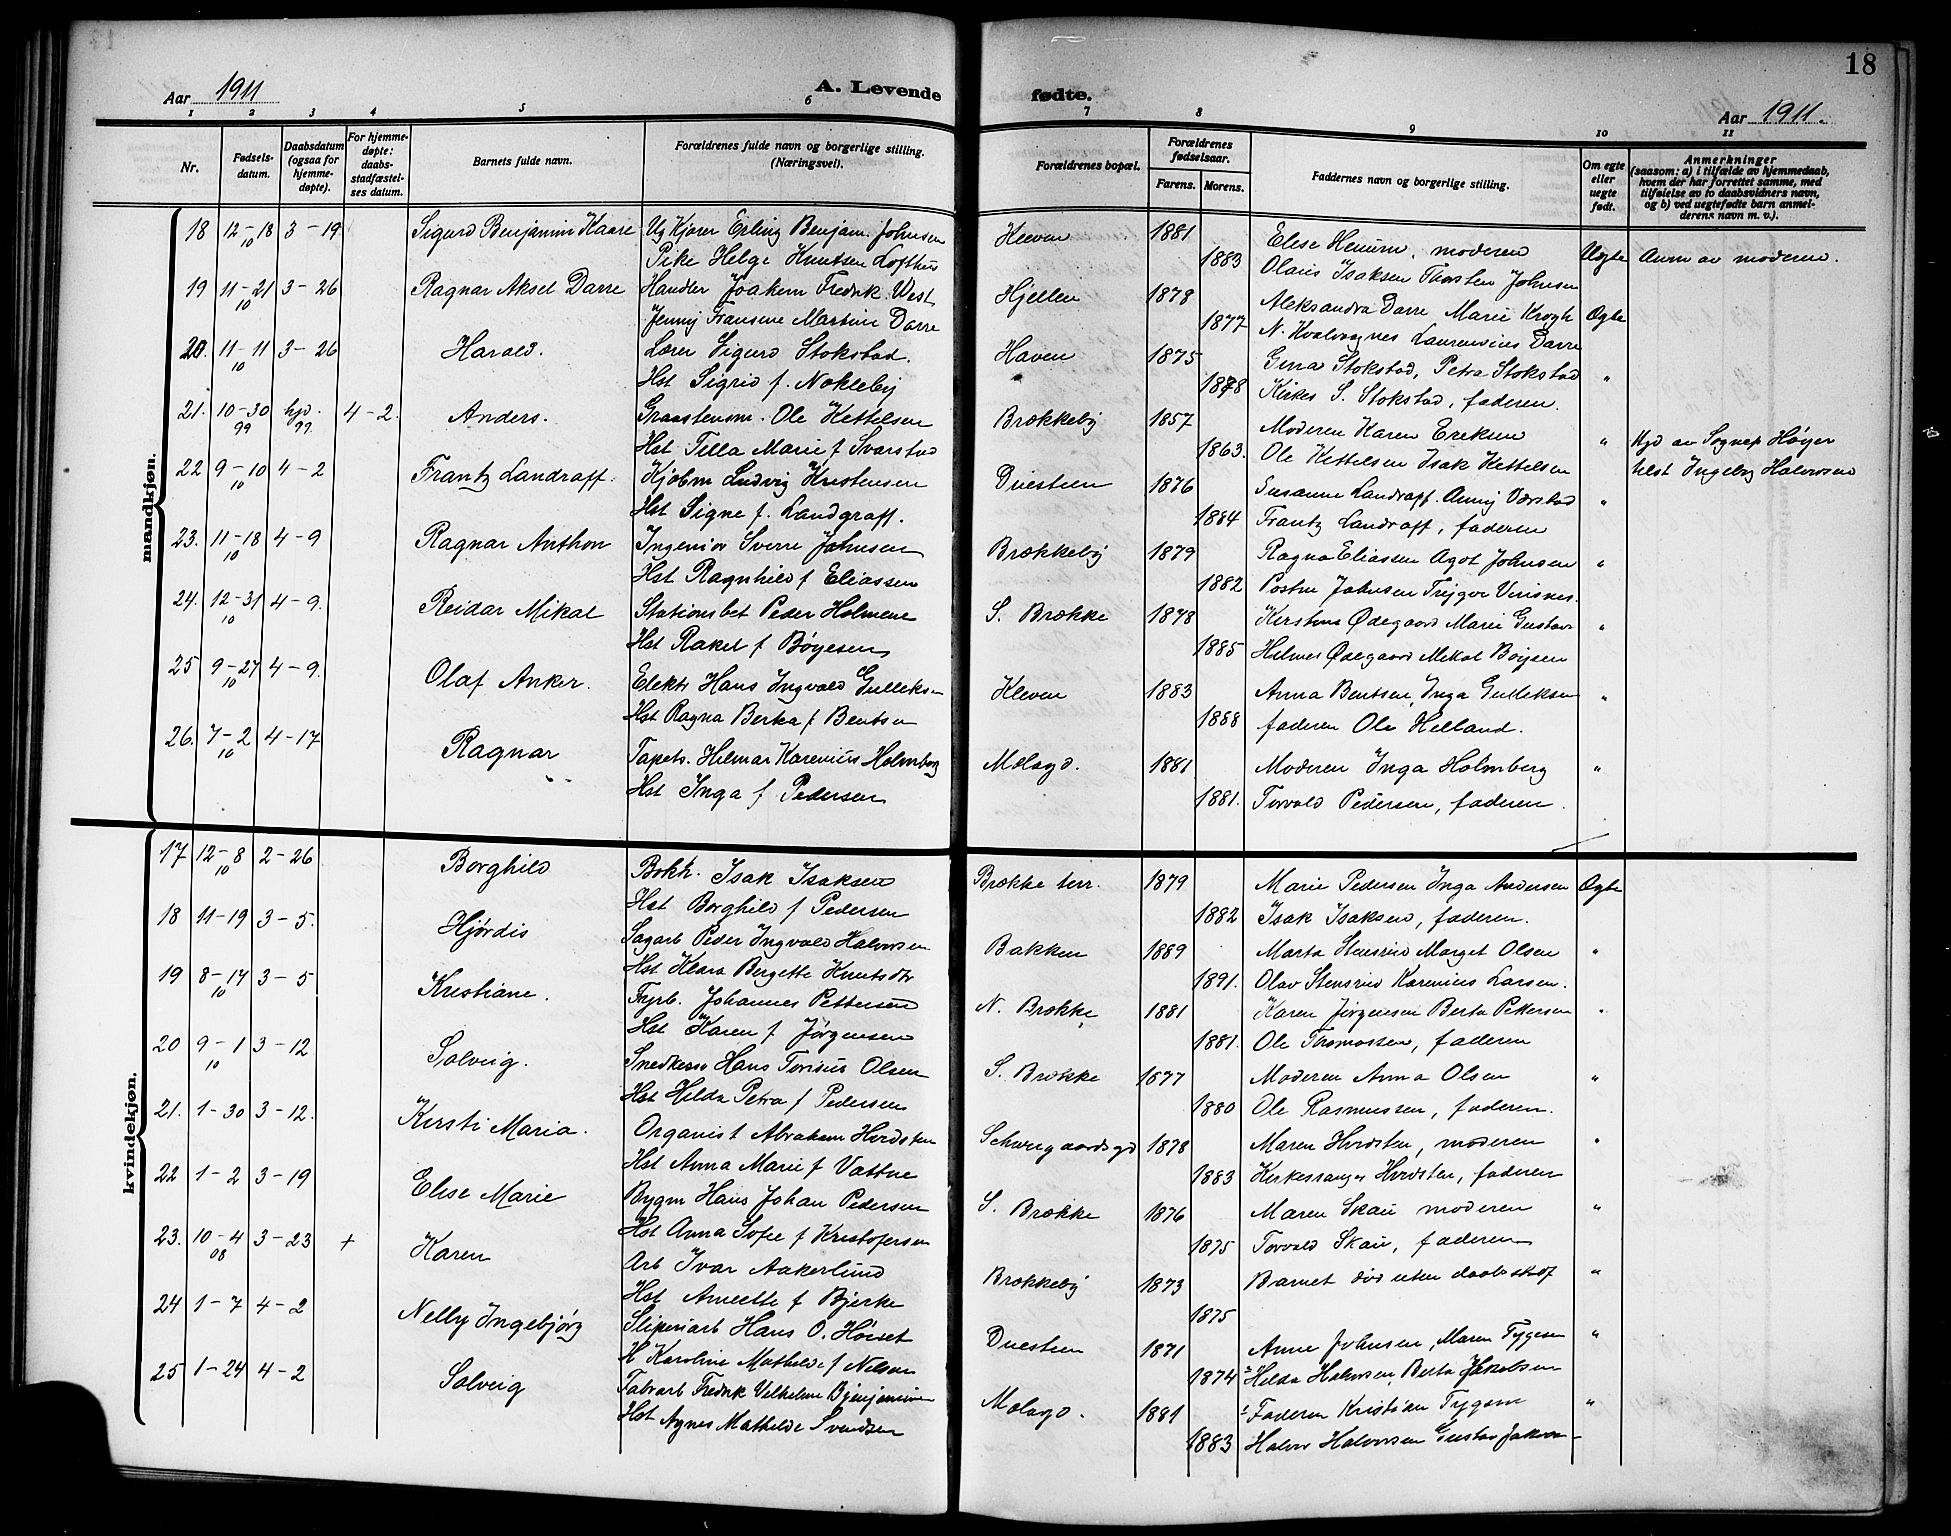 18
Aar 1911
A. Levende
fødte.
Aar 1911.
1 2 3 4 5 6 7 8 9 10 11
Nr.
Fødsels-
datum.
Daabsdatum
(ogsaa for
hjemme-
døpte).
For hjemme-
døpte:
daabs-
stadfæstel-
ses datum.
Barnets fulde navn.
Forældrenes fulde navn og borgerlige stilling.
(Næringsvei).
Forældrenes bopæl.
Forældrenes
fødselsaar.
Farens. Morens.
Faddernes navn og borgerlige stilling.
Om egte
eller
uegte
født.
Anmerkninger
(saasom: a) i tilfælde av hjemmedaab,
hvem der har forrettet samme, med
tilføielse av to daabsvidners navn,
og b) ved uegtefødte barn anmel-
derens navn m. v.).
mandkjøn.
18 12-18 10 3-19 Sigurd Benjamin Kaare Ug Kjører Erling Benjam. Johnsen Kleven 1881 Elise moderen Uegte Anm av moderen.
Pike Helge Knutsen Lofthus 1883 Olaus Isaksen Thorsten Johnsen
19 11-21 10 3-26 Ragnar Aksel Darre Handler Joakem Fredrik West Hjellen 1878 Aleksandra Darre Marie Krogh Egte
Jenny Fransine Martine Darre 1877 N. Kvalvaagnes Laurensius Darre
20. 11-11 10 3-26 Harald. Lærer Sigurd Stokstad. Haven 1875 Gina Stokstad, Petra Stokstad "
Hst Sigrid f. Nokleby 1878 Kirkes S. Stokstad, faderen.
21. 10-30 99 hjd. 99 4-2. Anders. Graastensm. Ole Kettelsen Brækkeby 1857 Moderen Karen Eriksen " Hjd av Sognep Høyer
Hst Tilla Marie f Svarstad 1863. Ole Kettelsen Isak Kettelsen tilst Ingebog Halvorsen
22 9-10 10 4-2 Frantz Landraff. Kjøbm Ludvig Kristensen Duesteen 1876 Susanne Landraff. Anny Værstad "
Hst Signe f. Landgraff. 1884 Frantz Landraff, faderen
23. 11-18 10 4-9 Ragnar Anthon Ingeniør Sverre Johnsen Brækkeby 1879 Ragna Eliassen Agot Johnsen "
Hst Ragnhild f Eliassen 1882 Postm Johnsen
24. 12-31 10 4-9. Reidar Mikal Stationsbet Peder Holmene S. Brække 1878 Kirstine Ødegaard Marie Gustavs "
Hst Rakel f Bøyesen 1885 Hilmer Ødegaard Mikal Bøysen
25 9-27 10 4-9. Olaf Anker. Elektr Hans Ingvald Gulleksen Kleven 1883 Anna Bentsen, Inga Gulleksen "
Hst Ragna Berka f Bentsen 1888 faderen Ole Helland.
26. 7-2 10 4-17 Ragnar Tapets. Hilmar Karenius Holmberg Molagd. 1881 Moderen Inga Holmberg "
Hst Inga f Pedersen 1881. Torvald Pedersen, faderen.
kvindekjøn.
17 12-8 10 2-26 Borghild Bokh. Isak Isaksen Brække terr. 1879 Marie Pedersen Inga Andersen Egte
Hst Borghild f Pedersen 1882 Isak Isaksen, faderen.
18 11-19 3-5. Hjørdis Sagarb Peder Ingvald Halvorsen Bakken 1889 Marta Stensrud Marget Olsen "
Hst Klara Bergette Knutsdtr 1891. Olav Stensrud Karenius Larsen.
19 8-14 10 3-5 Kristiane. Fyrb. Johannes Pettersen N. Brække 1881 Karen Jørgensen Berta Pettersen "
Hst Karen f Jørgensen 1881. Ole Thomassen, faderen
20 9-1 10 3-12 Solveig. Snedkersv Hans Torisius Olsen S. Brække 1877 Moderen Anna Olsen "
Hst Hilda Petra f Pedersen 1880 Ole Rasmussen, faderen.
21. 1-30 3-12. Kirsti Maria. Organist Abraham Hvidsten Schweigaardsgd 1878 Maren Hvidsten, moderen "
Hst Anna Marie f Vattne 1883 Kirkesanger Hvidsten, faderen
22 1-2 3-19 Elise Marie Bygm Hans Johan Pedersen S. Brække 1876 Maren Skau moderen "
Hst Anna Sofie f Kristofersen 1875 Torvald Skau, faderen
23. 10-4 08 3-23 + Karen Arb Ivar Aakerlund Brækkeby 1873 Barnet død uten daabstadf "
Hst Anette f Bjerke 1875
24 1-7 4-2 Nelly Ingebjörg Sliperiarb Hans O. Høiset Duesteen 1871 Anne Johnsen, Maren Tygesen "
H Karoline Mathilde f Nilsen 1874 Hilda Halvorsen, Berta Jakobsen
25 1-24 4-2 Solveig Fabrarb Fredrik Vilhelm Benjaminsen Molagd. 1881 Faderen Kristian Tygesen "
Hst Agnes Mathilde Svendsen 1883 Halvor Halvorsen Gustav Jakobsen